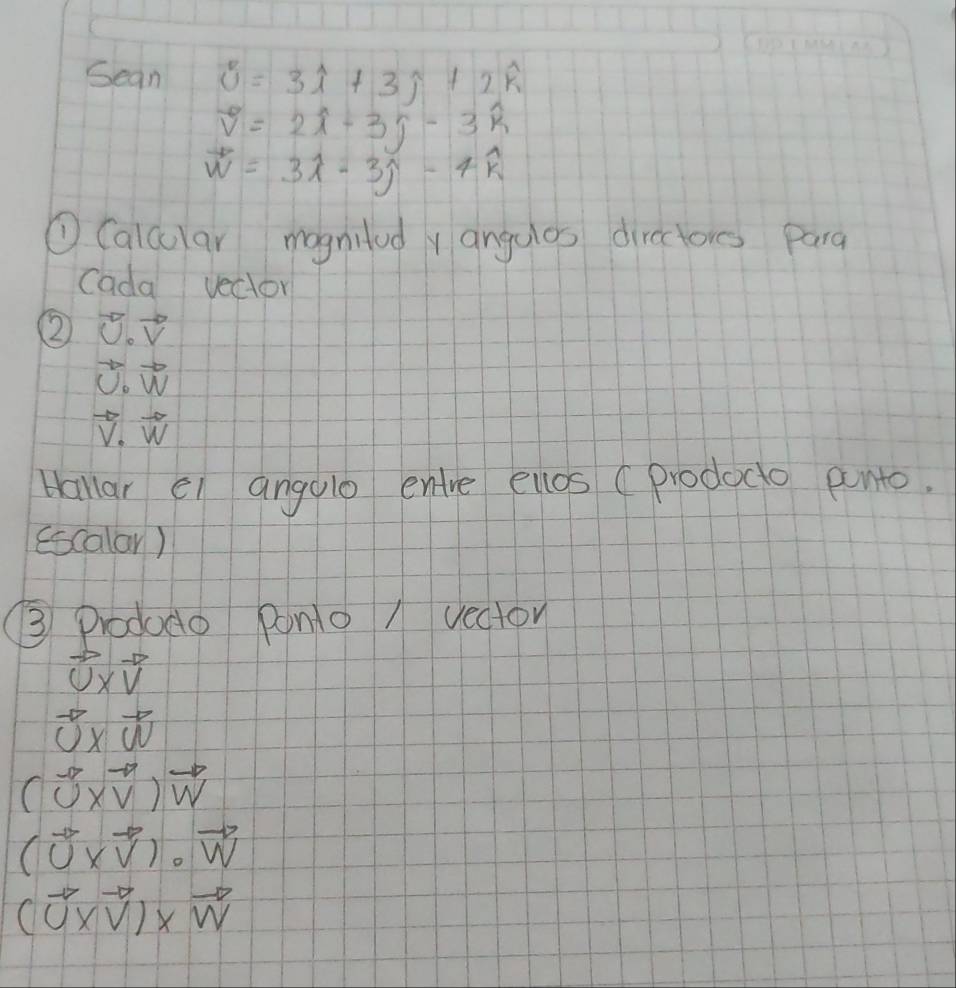 Sean U⃗ = 3î + 3ĵ + 2k̂
V⃗ = 2î - 3ĵ - 3k̂
W⃗ = 3î - 3ĵ - 4k̂
① Calcular magnitud y angulos directores para
cada vector
② U⃗ . V⃗
U⃗ . W⃗
V⃗ . W⃗
Hallar el angulo entre ellos ( producto punto.
Escalar)
③ Producto Punto / vector
U⃗ x V⃗
U⃗ x W⃗
( U⃗ x V⃗ ) W⃗
( U⃗ x V⃗ ) . W⃗
( U⃗ x V⃗ ) x W⃗